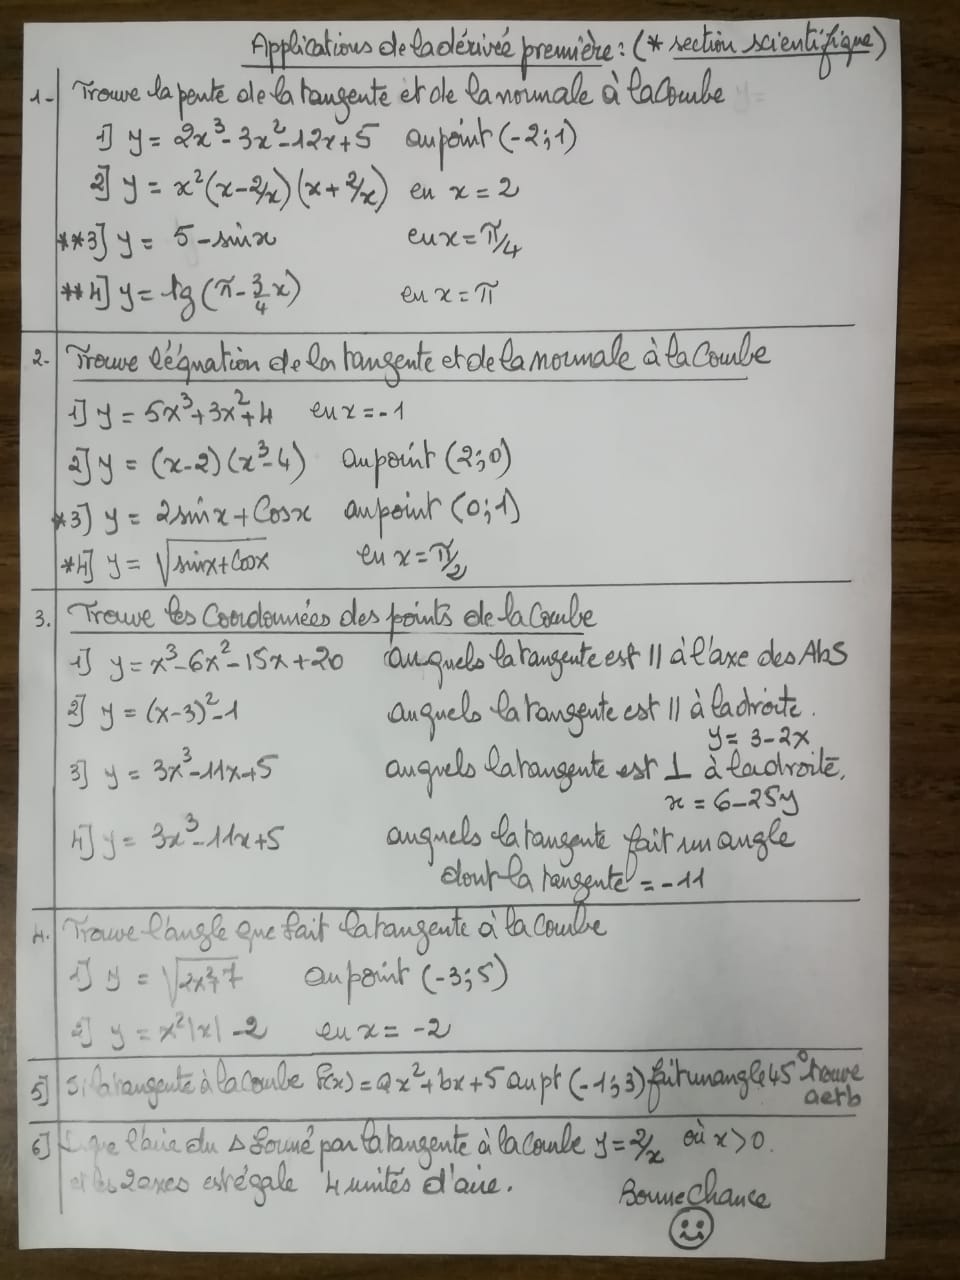 Applications de la dérivée première : (* section scientifique)
1- Trouve la pente de la tangente et de la normale à la Courbe
1] y = 2x³- 3x²-12x+5 au point (-2;1)
2] y = x²(x-2/x)(x+2/x) en x = 2
**3] y = 5-sinx en x = π/4
**4] y = tg(π-3/4x) en x = π
2- Trouve l'équation de la tangente et de la normale à la Courbe
1] y = 5x³+3x²+4 en x = -1
2] y = (x-2)(x³-4) au point (2;0)
*3] y = 2sinx+Cosx au point (0;1)
*4] y = √sinx+Cosx en x = π/2
3. Trouve les Coordonnées des points de la Courbe
1] y = x³-6x²-15x+20 auquels la tangente est // à l'axe des Abs
2] y = (x-3)²-1 auquels la tangente est // à la droite.
y = 3-2x
3] y = 3x³-11x+5 auquels la tangente est ⊥ à la droite.
x = 6-25y
4] y = 3x³-11x+5 auquels la tangente fait un angle
dont la tangente = -11
4. Trouve l'angle que fait la tangente à la Courbe
1] y = √2x²+7 au point (-3;5)
2] y = x²|x| -2 en x = -2
5] Si la tangente à la courbe f(x) = ax²+bx+5 au pt (-1;3) fait un angle 45° trouve
a et b
6] que l'aire du Δ formé par la tangente à la courbe y = 2/x où x>0.
et les 2 axes est égale 4 unités d'aire.
Bonne Chance